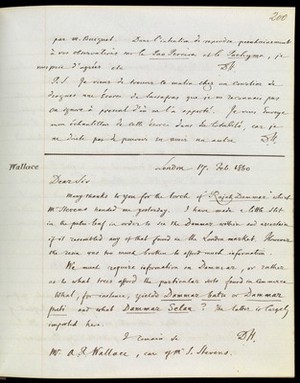 200
par M. Bourgeot. Dans l'intention de répondre prochainement
à vos observations sur le Pao Pereira et le Parthyme, je
vous prie d'agréer etc DH
P.S. Je viens de trouver le matin chez un Courtier de
drogues une Écorce de Savapas que je ne reconnais pas
on ignore à présent d'où on l'a apporté. Je vous envoye
mon échantillon de cette écorce dans la , car je
ne doute pas de pouvoir en avoir un autre DH
Wallace
London 17 Feb. 1860
Dear Sir
Many thanks to you for the torch of "Rajah Dammar" which
Mr. Stevens handed me yesterday. I have made a little slit
in the palm-leaf in order to see the Dammar within and ascertain
if it resembled any of that found in the London market. However
the resin was too much broken to afford much information.
We much require information on Dammar, or rather
as to what trees afford the particular sorts found in Commerce.
What, for instance, yields Dammar batu or Dammar
puti and what Dammar Selan? The latter is largely
imported here.
I remain &c DH.
Mr. A. R. Wallace, care of Mr. S. Stevens.